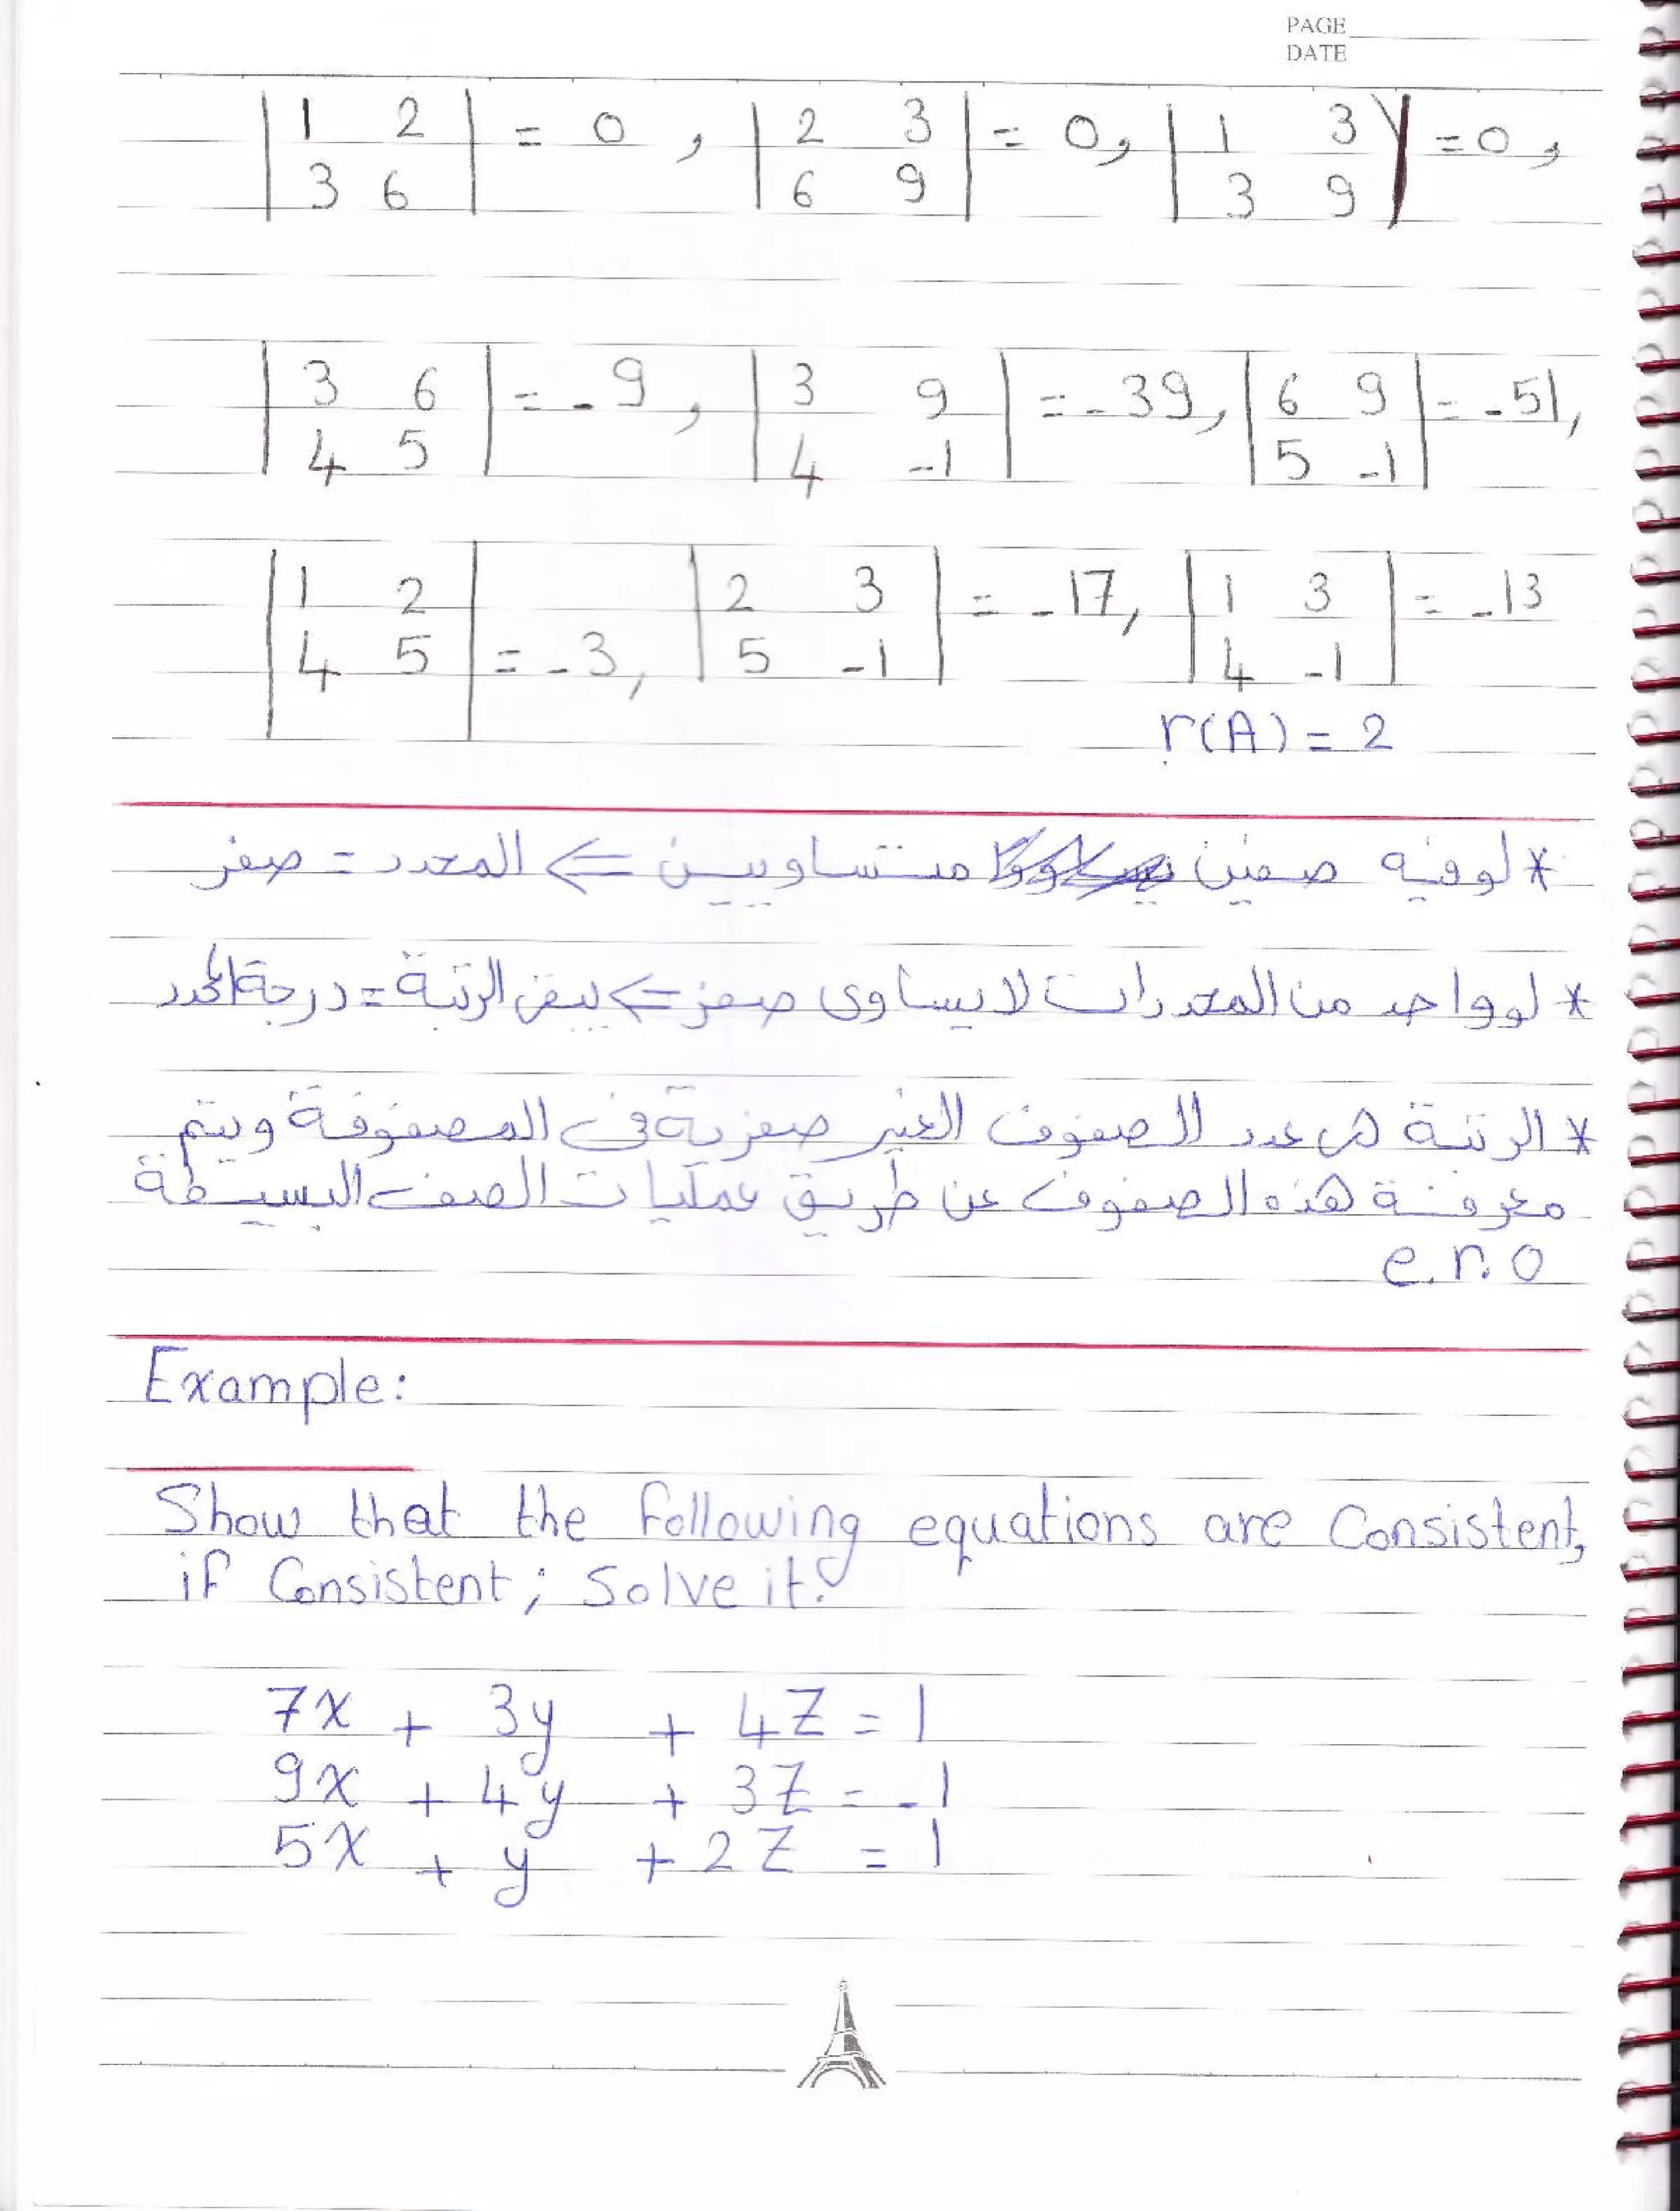 PAGE
DATE
| 1 2 | = 0 , | 2 3 | = 0, | 1 3 | = 0,
| 3 6 | | 6 9 | | 3 9 |
| 3 6 | = -9, | 3 9 | = -39, | 6 9 | = -51,
| 4 5 | | 4 -1 | | 5 -1 |
| 1 2 | | 2 3 | = -17, | 1 3 | = -13
| 4 5 | = -3, | 5 -1 | | 4 -1 |
r(A) = 2
* لو فيه صفين متساويين => المحدد = صفر
* لو واحد من المحددات لا يساوى صفر => يبقى الرتبة = درجة المحدد
* الرتبة هى عدد الصفوف الغير صفرية فى المصفوفة ويتم
معرفة هذه الصفوف عن طريق عمليات الصف البسيطة
e.r.o
Example:
Show that the following equations are Consistent,
if Consistent; Solve it?
7x + 3y + 4Z = 1
9x + 4y + 3Z = -1
5x + y + 2Z = 1